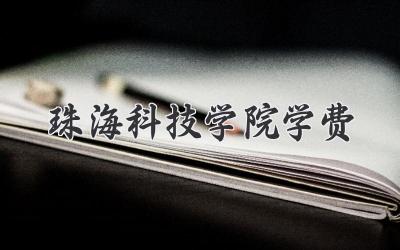 珠海科技学院学费